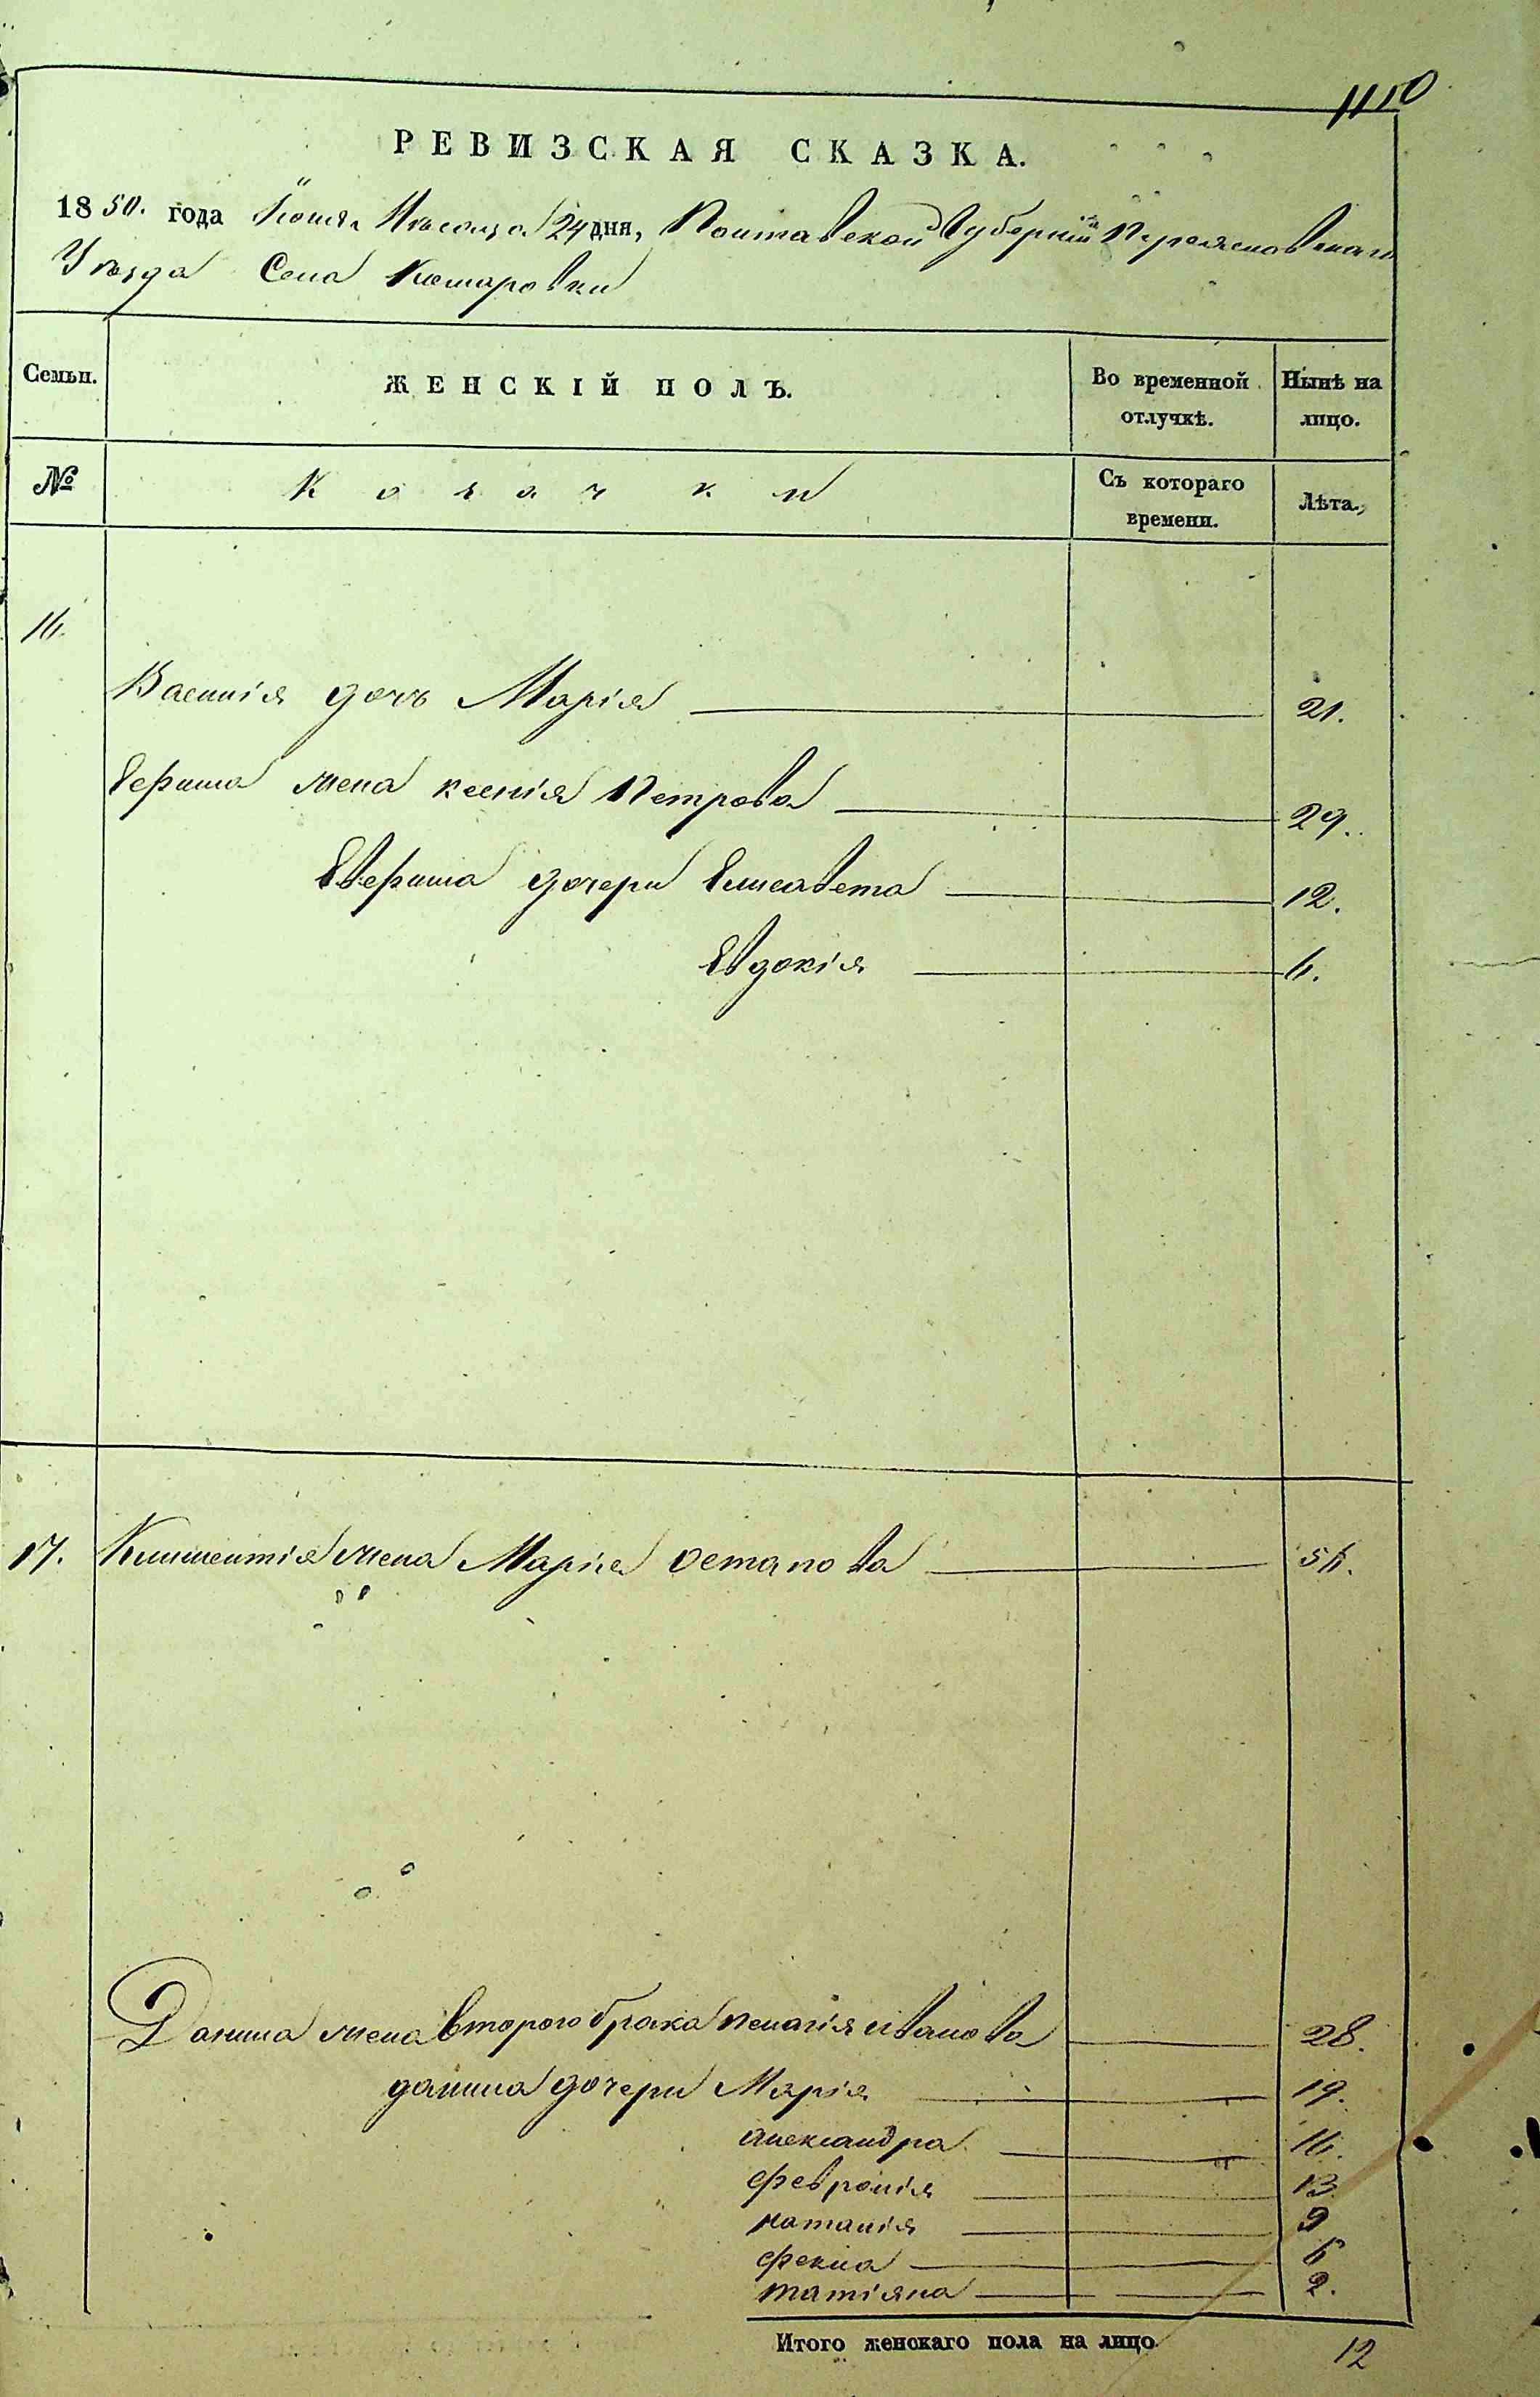 1110
РЕВИЗСКАЯ СКАЗКА.
1850. года Іюня Мѣсяца 24 дня, Полтавской Губерніи Переясловскаго
Уѣзда Села Комаровки
Семьи. ЖЕНСКІЙ ПОЛЪ. Во временной отлучкѣ. Нынѣ на лицо.
№ Козачки Съ котораго времени. Лѣта.
16.
Василія дочь Марія 21.
жена Ксенія Петрова 29.
дочери Елисавета 12.
Евдокія 6.
17. Климентія жена Марія Остапова 56.
Данила жена второго брака Пелагія Иванова 28.
данила дочери Марія 19.
александра 16.
февронія 13
наталія 9
фекла 6
татіяна 2.
Итого женскаго пола на лицо. 12